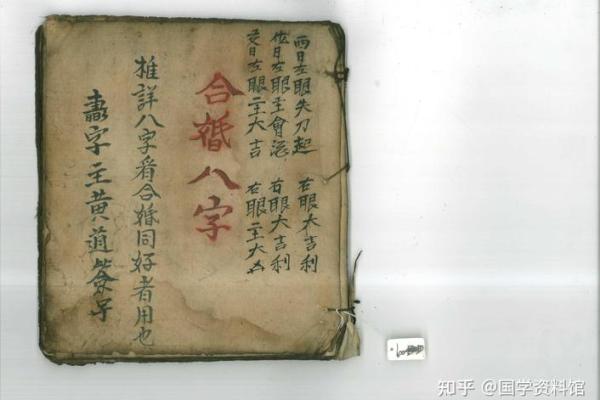 西日左眼失刀起 右眼大吉利
日左眼主會 右眼大吉利
日左眼二主大吉 右眼二主大凶
合婚八字
推詳八字看合婚同好者用也
字主黄道
知乎 @国学资料馆